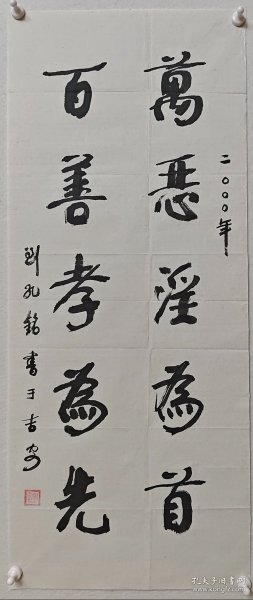 二〇〇〇年
萬惡淫為首
百善孝為先
劉孔銘書于吉安
孔夫子旧书网
www.kongfz.com